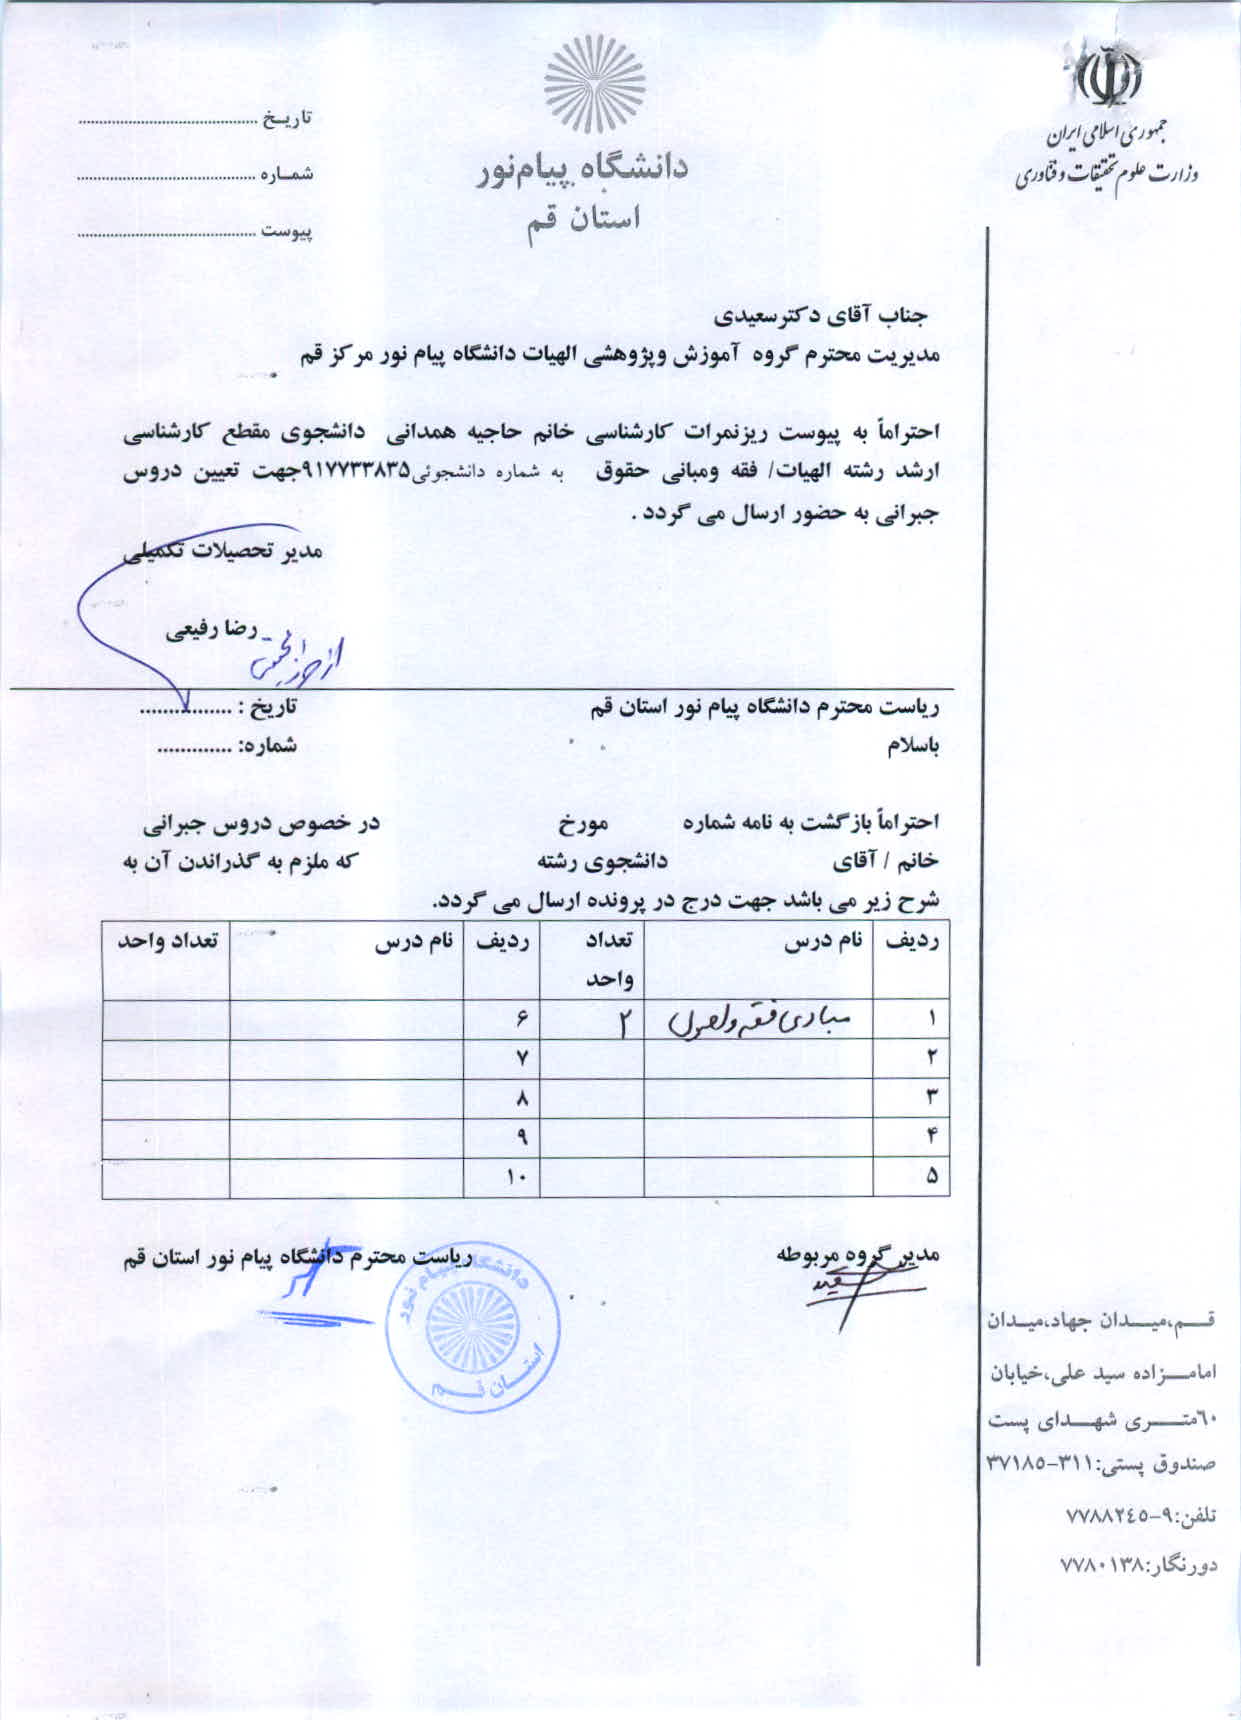 جمهوری اسلامی ایران
وزارت علوم تحقیقات و فناوری
دانشگاه پیام‌نور
استان قم
تاریـخ ......................................
شمـاره ......................................
پیوست ......................................
جناب آقای دکترسعیدی
مدیریت محترم گروه آموزش وپژوهشی الهیات دانشگاه پیام نور مرکز قم
احتراماً به پیوست ریزنمرات کارشناسی خانم حاجیه همدانی دانشجوی مقطع کارشناسی
ارشد رشته الهیات/ فقه ومبانی حقوق به شماره دانشجوئی۹۱۷۷۳۳۸۳۵جهت تعیین دروس
جبرانی به حضور ارسال می گردد .
مدیر تحصیلات تکمیلی
رضا رفیعی
ریاست محترم دانشگاه پیام نور استان قم تاریخ : ................
باسلام شماره: .............
احتراماً بازگشت به نامه شماره مورخ در خصوص دروس جبرانی
خانم / آقای دانشجوی رشته که ملزم به گذراندن آن به
شرح زیر می باشد جهت درج در پرونده ارسال می گردد.
ردیف نام درس تعداد واحد ردیف نام درس تعداد واحد
۱ مبادی فقه و اصول ۲ ۶
۲ ۷
۳ ۸
۴ ۹
۵ ۱۰
مدیر گروه مربوطه ریاست محترم دانشگاه پیام نور استان قم
دانشگاه پیام نور
استان قم
قـم،میـدان جهاد،میـدان
امامـزاده سید علی،خیابان
٦٠متـری شهـدای پست
صندوق پستی:۳۱۱-۳۷۱۸۵
تلفن:۹-۷۷۸۸۲٤۵
دورنگار:۷۷۸۰۱۳۸